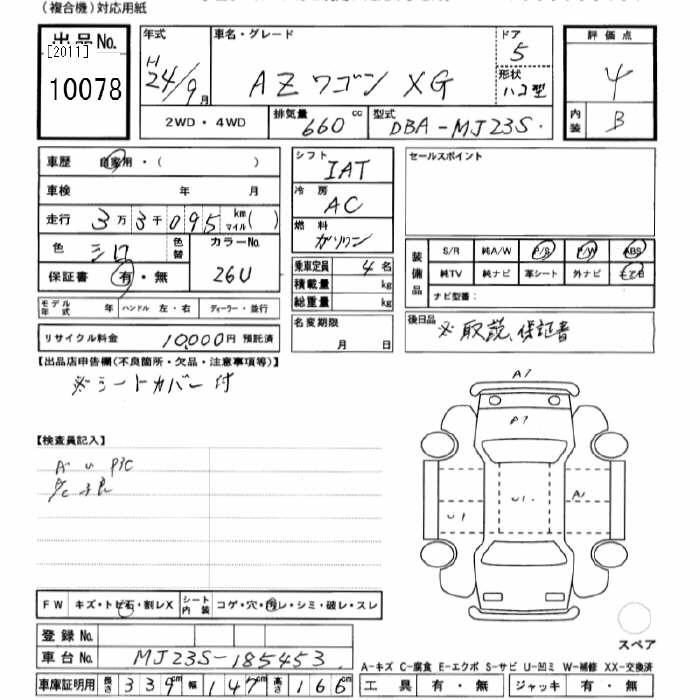 (複合機)対応用紙
出品No.
[2011]
10078
年式
H
24/9月
車名・グレード
AZワゴン XG
ドア
5
形状
ハコ型
評価点
4
内装
B
2WD・4WD
排気量
660 cc
型式
DBA-MJ23S
車歴 自家用・( )
車検 年 月
走行 3万3千095 km マイル( )
色 シロ 色替
カラーNo.
26U
保証書 有・無
モデル年式 年 ハンドル 左・右 ディーラー・並行
リサイクル料金 10,000円 預託済
シフト
IAT
冷房
AC
燃料
ガソリン
乗車定員 4名
積載量 kg
総重量 kg
名変期限
月 日
セールスポイント
装備品
S/R 純A/W P/S P/W ABS
純TV 純ナビ 革シート 外ナビ
ナビ型番:
後日品
※取説、保証書
【出品店申告欄(不良箇所・欠品・注意事項等)】
※シートカバー付
【検査員記入】
A U
A1
A7
U1
U1
FW キズ・トビ石・割レX シート内装 コゲ・穴・汚レ・シミ・破レ・スレ
登録No.
車台No. MJ23S-185453
車庫証明用 長さ 339 幅 147 高さ 166
スペア
A-キズ C-腐食 E-エクボ S-サビ U-凹ミ W-補修 XX-交換済
工具 有・無 ジャッキ 有・無